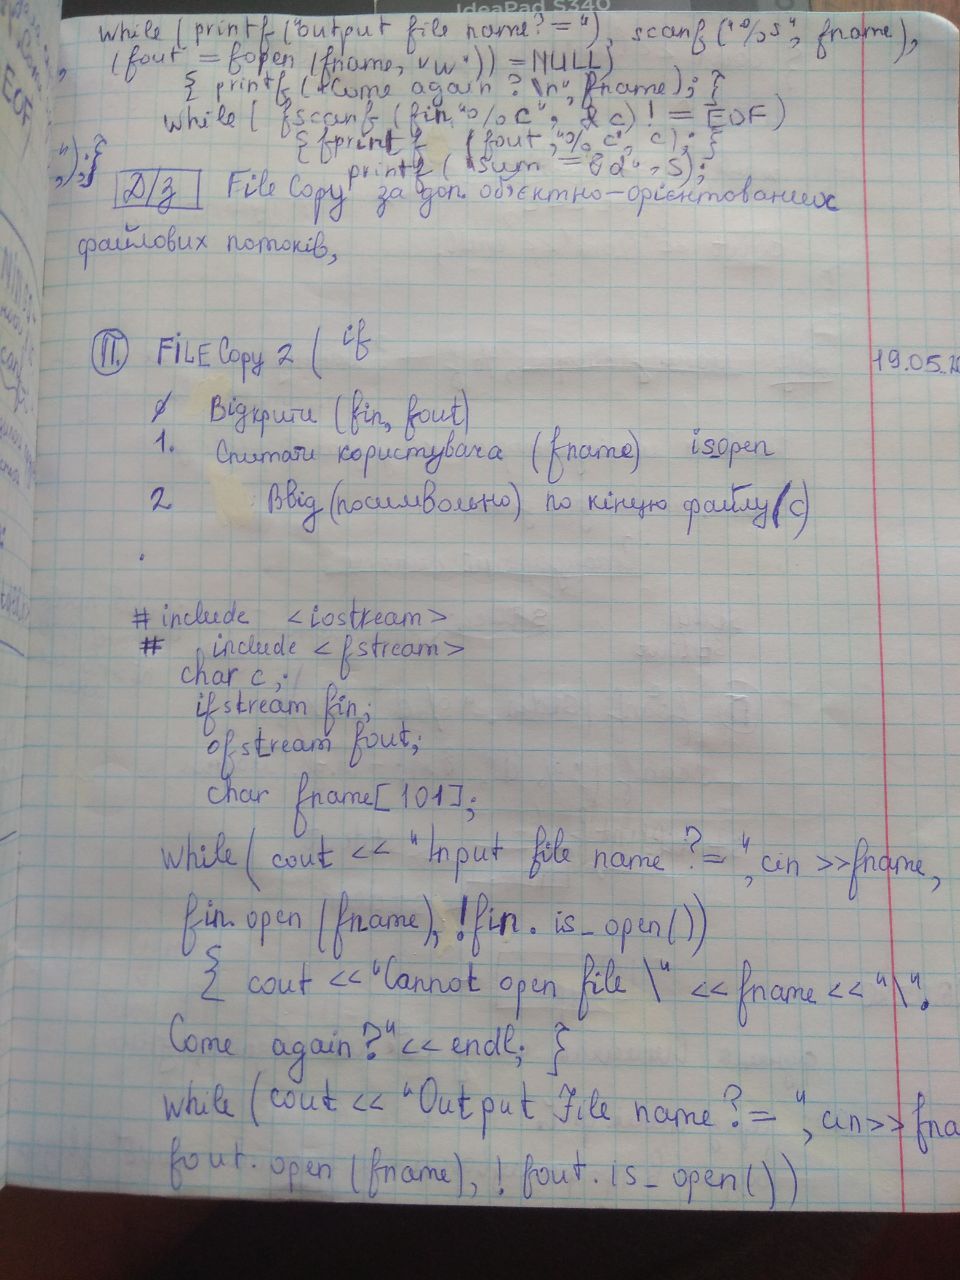 IdeaPad S340
while (printf ("output file name? = "), scanf ("%s", fname),
(fout = fopen (fname, "w")) = NULL)
{ printf ("Come again? \n", fname); }
while ( fscanf (fin, "%c", &c) ! = EOF)
{ fprintf (fout, "%c", c); }
printf ( "sum = %d", S);
EOF
"); }
Д/З File Copy за доп. об'єктно-орієнтованих
файлових потоків,
II. FILE Copy 2 ( if
19.05.20
Ø Відкрити (fin, fout)
1. Спитати користувача (fname) isopen
2 Ввід (посимвольно) по кінцю файлу (c)
# include <iostream>
# include <fstream>
char c;
ifstream fin;
ofstream fout;
char fname[101];
while ( cout << "Input file name ?= ", cin >>fname,
fin. open (fname), !fin. is_open())
{ cout <<"Cannot open file \" <<fname << "\".
Come again?" << endl; }
while ( cout << "Output File name ?= ", cin>> fna
fout. open (fname), ! fout. is_open())